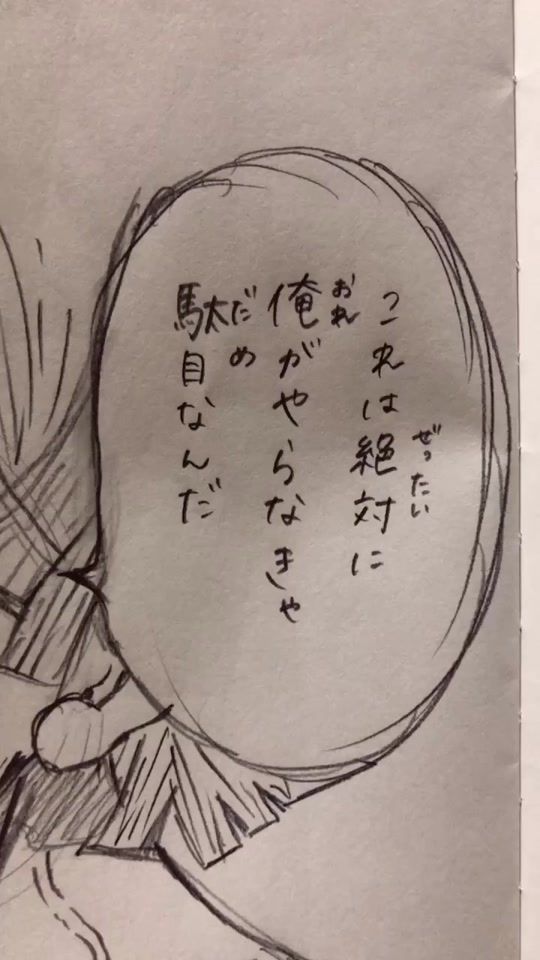 これは絶対に
ぜったい
俺がやらなきゃ
おれ
駄目なんだ
だめ